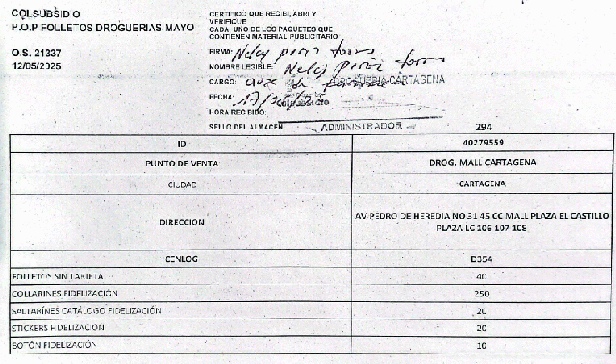 COLSUBSIDIO
P.O.P FOLLETOS DROGUERIAS MAYO
O.S. 21337
12/05/2025
CERTIFICO QUE RECIBI, ABRI Y
VERIFIQUE
CADA UNO DE LOS PAQUETES QUE
CONTIENEN MATERIAL PUBLICITARIO
FIRMA:
NOMBRE LEGIBLE:
CARGO: DROGUERIA CARTAGENA
FECHA:
HORA RECIBIDO:
SELLO DEL ALMACEN ADMINISTRADOR 294
ID 40779559
PUNTO DE VENTA DROG. MALL CARTAGENA
CIUDAD CARTAGENA
DIRECCION AV PEDRO DE HEREDIA NO 31 45 CC MALL PLAZA EL CASTILLO
PLAZA LC 106 107 108
CENLOG D354
FOLLETOS SIN TARJETA 40
COLLARINES FIDELIZACIÓN 250
SALTARINES CATÁLOGO FIDELIZACIÓN 20
STICKERS FIDELIZACION 20
BOTÓN FIDELIZACIÓN 10